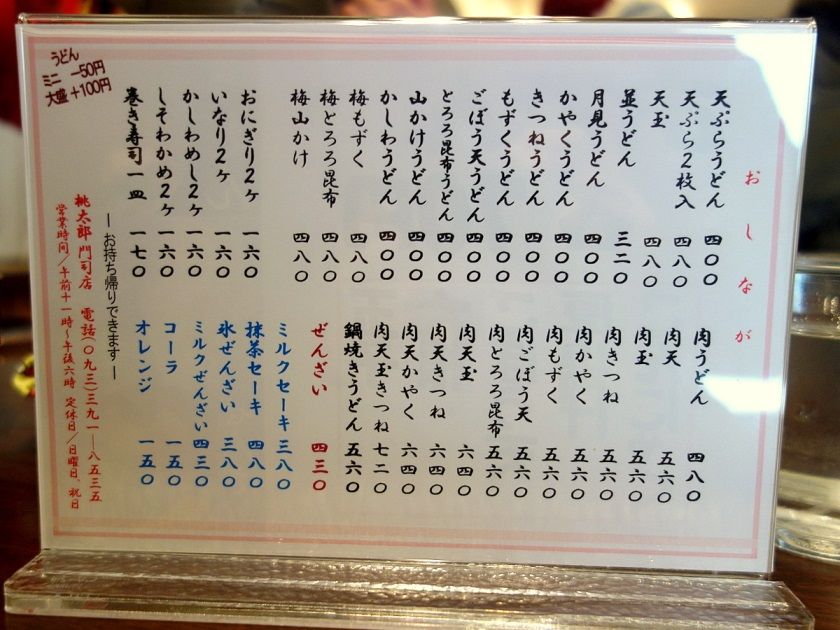 おしなが
天ぷらうどん 四〇〇
天ぷら2枚入 四八〇
天玉 四八〇
並うどん 三二〇
月見うどん 四〇〇
かやくうどん 四〇〇
きつねうどん 四〇〇
もずくうどん 四〇〇
ごぼう天うどん 四〇〇
とろろ昆布うどん 四〇〇
山かけうどん 四〇〇
かしわうどん 四〇〇
梅もずく 四八〇
梅とろろ昆布 四八〇
梅山かけ 四八〇
おにぎり2ヶ 一六〇
いなり2ヶ 一六〇
かしわめし2ヶ 一六〇
しそわかめ2ヶ 一六〇
巻き寿司一皿 一七〇
うどん
ミニ －50円
大盛 ＋100円
肉うどん 四八〇
肉天 五六〇
肉玉 五六〇
肉きつね 五六〇
肉かやく 五六〇
肉もずく 五六〇
肉ごぼう天 五六〇
肉とろろ昆布 五六〇
肉天玉 六四〇
肉天きつね 六四〇
肉天かやく 六四〇
肉天玉きつね 七二〇
鍋焼きうどん 五六〇
ぜんざい 四三〇
ミルクセーキ 三八〇
抹茶セーキ 四八〇
氷ぜんざい 三八〇
ミルクぜんざい 四三〇
コーラ 一五〇
オレンジ 一五〇
―お持ち帰りできます―
桃太郎 門司店 電話(〇九三)三九一―八五三五
営業時間/午前十一時～午後六時 定休日/日曜日、祝日